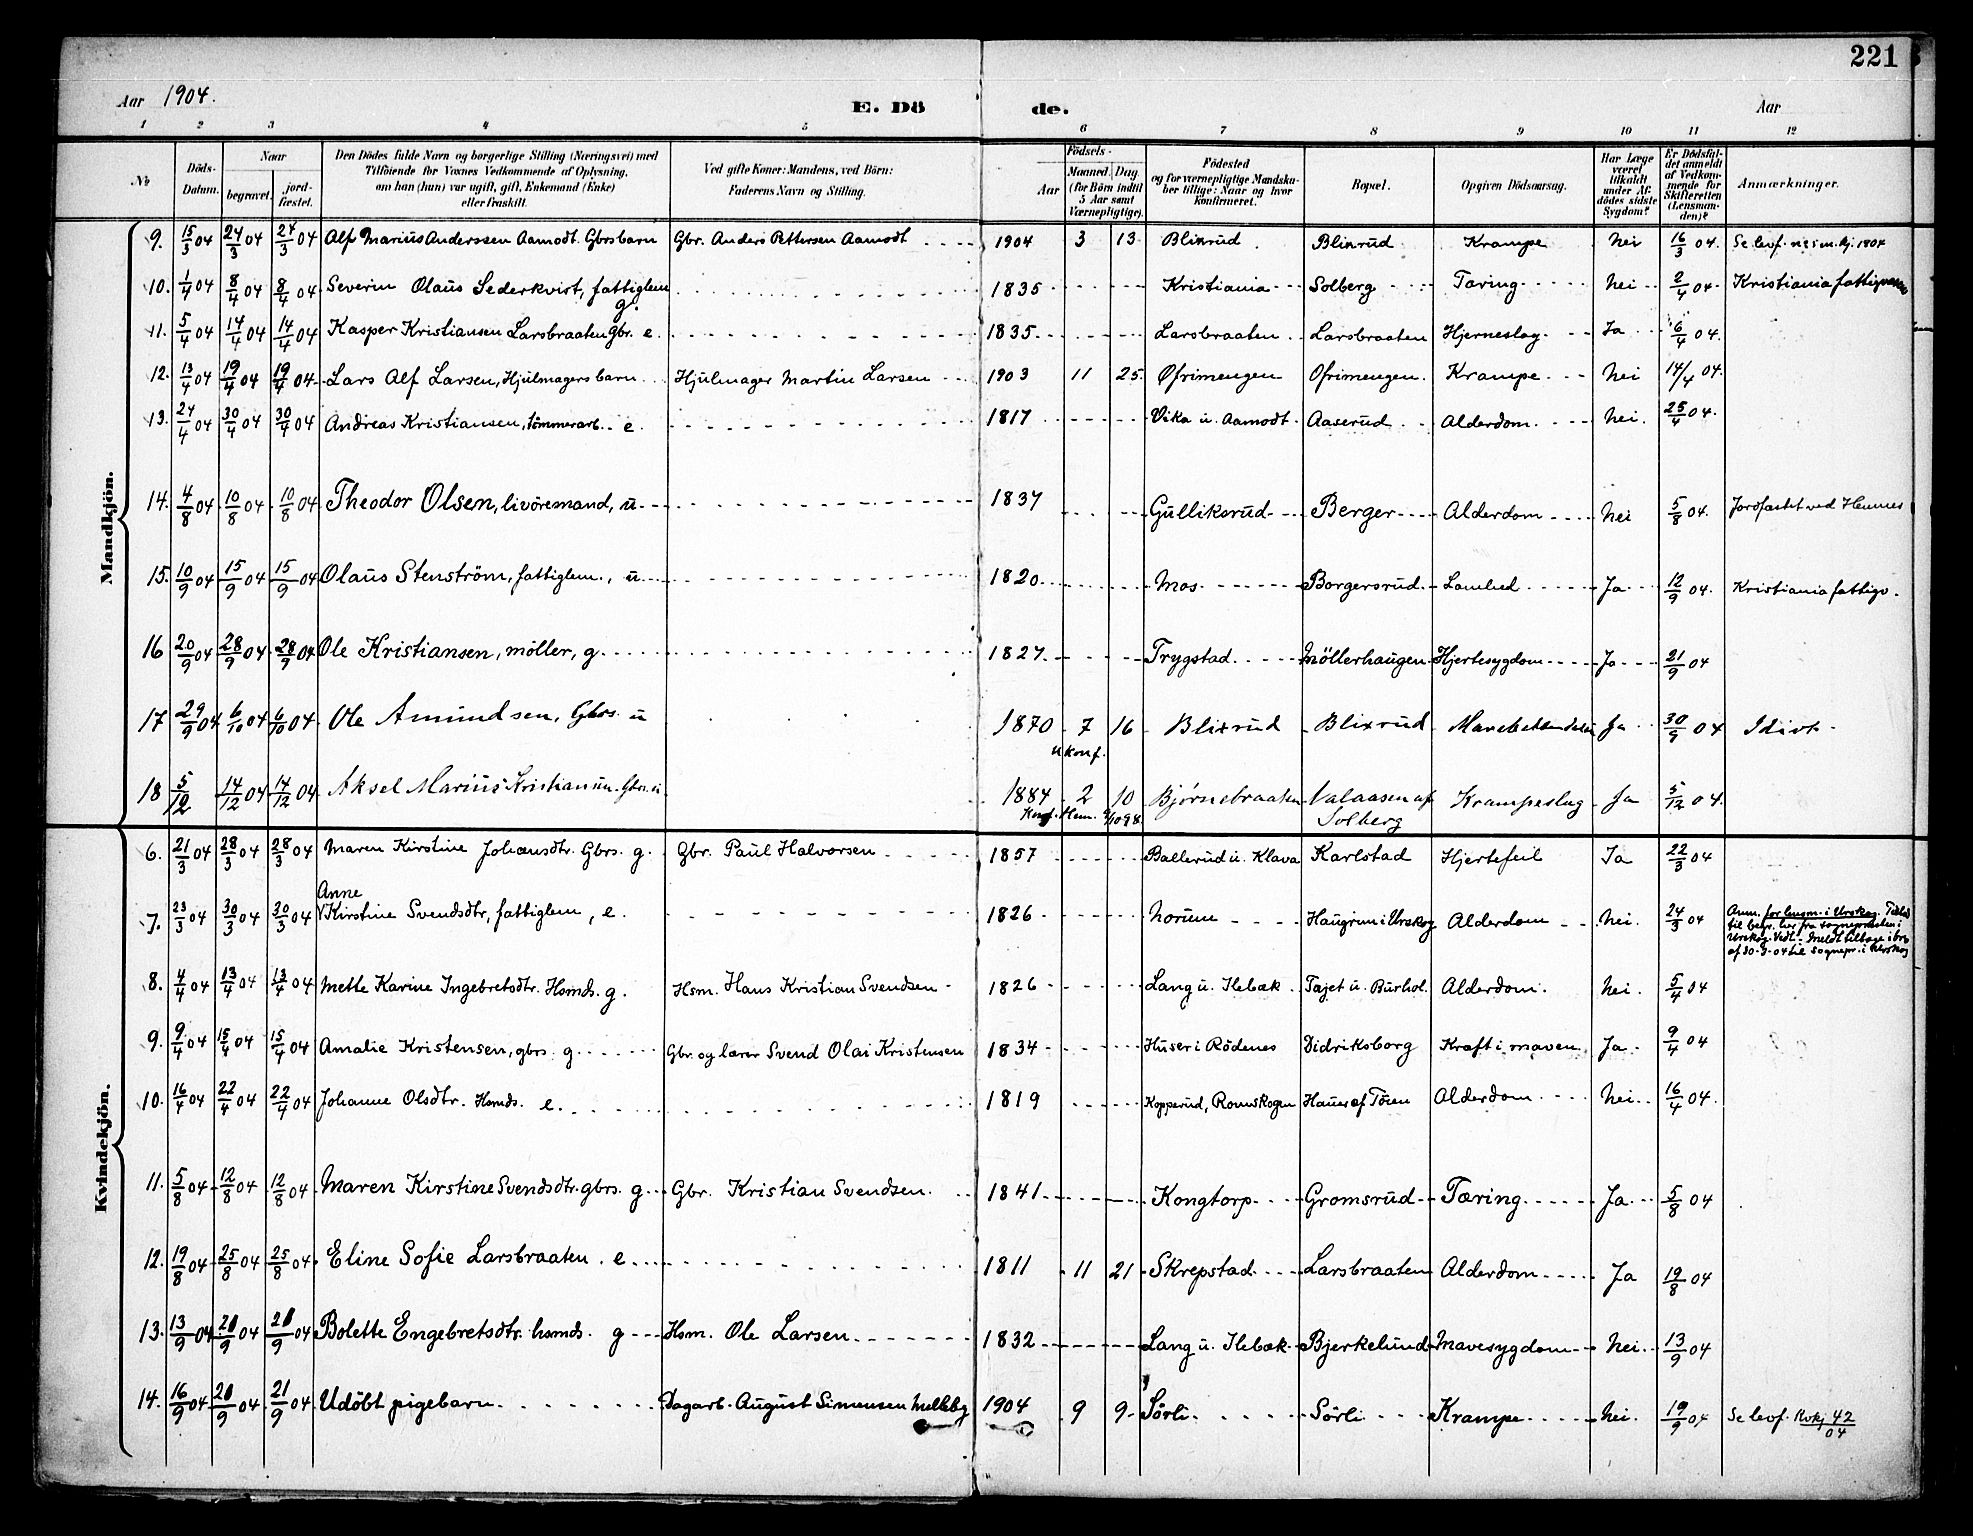 221
Aar 1904.
E. Dö
de.
Aar
1 2 3 4 5 6 7 8 9 10 11 12
№
Döds-Datum.
Naar
begravet.
jord-fæstet.
Den Dödes fulde Navn og borgerlige Stilling (Næringsvei) med Tilföiende for Voxnes Vedkommende af Oplysning, om han (hun) var ugift, gift, Enkemand (Enke) eller fraskilt.
Ved gifte Koner: Mandens, ved Börn: Faderens Navn og Stilling.
Födsels-
Aar
Maaned. Dag
(for Börn indtil 5 Aar samt Værnepligtige).
Födested og for værnepligtige Mandskaber tillige: Naar og hvor Konfirmeret.
Bopæl.
Opgiven Dödsaarsag.
Har Læge været tilkaldt under Afdödes sidste Sygdom?
Er Dödsfaldet anmeldt af Vedkommende for Skifteretten (Lensmanden)?
Anmærkninger.
Mandkjön.
9. 15/3 04 24/3 04 24/3 04 Alf Marius Anderssen Aamodt. Gbrsbarn Gbr. Anders Pettersen Aamodt 1904 3 13 Blixrud Blixrud Krampe Nei 16/3 04. Se levf. n: 5 m. kj. 1904
10. 1/4 04 8/4 04 8/4 04 Severin Olaus Sederkvist, fattiglem g. 1835 Kristiania Solberg Tæring Nei 2/4 04 Kristiania fattigvæsen
11. 5/4 04 14/4 04 14/4 04 Kasper Kristiansen Larsbraaten Gbr. e. 1835 Larsbraaten Larsbraaten Hjerneslag Ja 6/4 04.
12. 13/4 04 19/4 04 19/4 04 Lars Alf Larsen, Hjulmagersbarn Hjulmager Martin Larsen 1903 11 25. Ofrimengen Ofrimengen. Krampe Nei 14/4 04.
13. 24/4 04 30/4 04 30/4 04 Andreas Kristiansen, tömmerarb. e. 1817 Vika u. Aamodt Aaserud Alderdom. Nei. 25/4 04.
14. 4/8 04 10/8 04 10/8 04 Theodor Olsen, livöremand, u 1837 Gulliksrud Berger Alderdom Nei 5/8 04. Jordfæstet ved Hemnes
15. 10/9 04 15/9 04 15/9 04 Olaus Stenström, fattiglem., u 1820 Mos Borgersrud Lamhed Ja 12/9 04. Kristiania fattigv.
16 20/9 04 28/9 04 28/9 04 Ole Kristiansen, möller, g. 1827 Trygstad Möllerhaugen Hjertesygdom Ja 21/9 04
17 29/9 04 6/10 04 6/10 04. Ole Amundsen, Gbrs. u 1870 7 16 Blixrud Blixrud Ja 30/9 04 Idiot
ukonf.
18 5/12 14/12 04 14/12 04 Aksel Marius Kristiansen. Gbrs. u 1884 2 10 Bjørnebraaten Valaasen af Solberg Krampeslag Ja 5/12 04.
Konf. Hem.
Kvindekjön.
6. 21/3 04 28/3 04 28/3 04 Maren Kirstine Johansdtr. Gbrs. g. Gbr. Paul Halvorsen 1857 Ballerud u. Klava Karlstad Hjertefeil Ja 22/3 04
7. 23/3 04 30/3 04 30/3 04 Anne Kirstine Svendsdtr, fattiglem, e. 1826 Norum Haugrim i Urskog Alderdom Nei. 24/3 04 Anm. for lensm. i Urskog. Tillad. til begr. her fra sognepræsten i Urskog. Vedl. Meldt tilbage i brev af 30-3-04 til sognepr. i Urskog
8. 4/4 04 13/4 04 13/4 04 Mette Karine Ingebretsdtr. Hsmds. g. Hsm. Hans Kristian Svendsen 1826 Lang u. Ilebæk. Tajet u. Burhol. Alderdom. Nei. 5/4 04
9. 9/4 04 15/4 04 15/4 04 Amalie Kristensen, gbrs. g Gbr. og lærer Svend Olai Kristensen 1834 Huser i Rödenes Didriksborg Kræft i maven Ja. 9/4 04
10. 16/4 04 22/4 04 22/4 04 Johanne Olsdtr. Hsmds. e. 1819 Kopperud, Romskogen Hauer af Töien Alderdom Nei. 16/4 04.
11. 5/8 04 12/8 04 12/8 04 Maren Kirstine Svendsdtr. gbrs. g Gbr. Kristian Svendsen. 1841 Kongtorp Gromsrud Tæring Ja 5/8 04
12. 19/8 04 25/8 04 25/8 04. Eline Sofie Larsbraaten. e 1811 11 21 Skrepstad Larsbraaten Alderdom Ja 19/8 04
13. 13/9 04 20/9 04 20/9 04 Bolette Engebretsdtr. hsmds. g Hsm. Ole Larsen 1832 Lang u. Ilebæk Bjerkelund Mavesygdom Nei. 13/9 04
14. 16/9 04 21/9 04 21/9 04 Udöbt pigebarn Dagarb. August Simensen Melleby 1904 9 9 Sörli. Sörli Krampe Nei. 19/9 04 Se levf. Kvkj 42/04